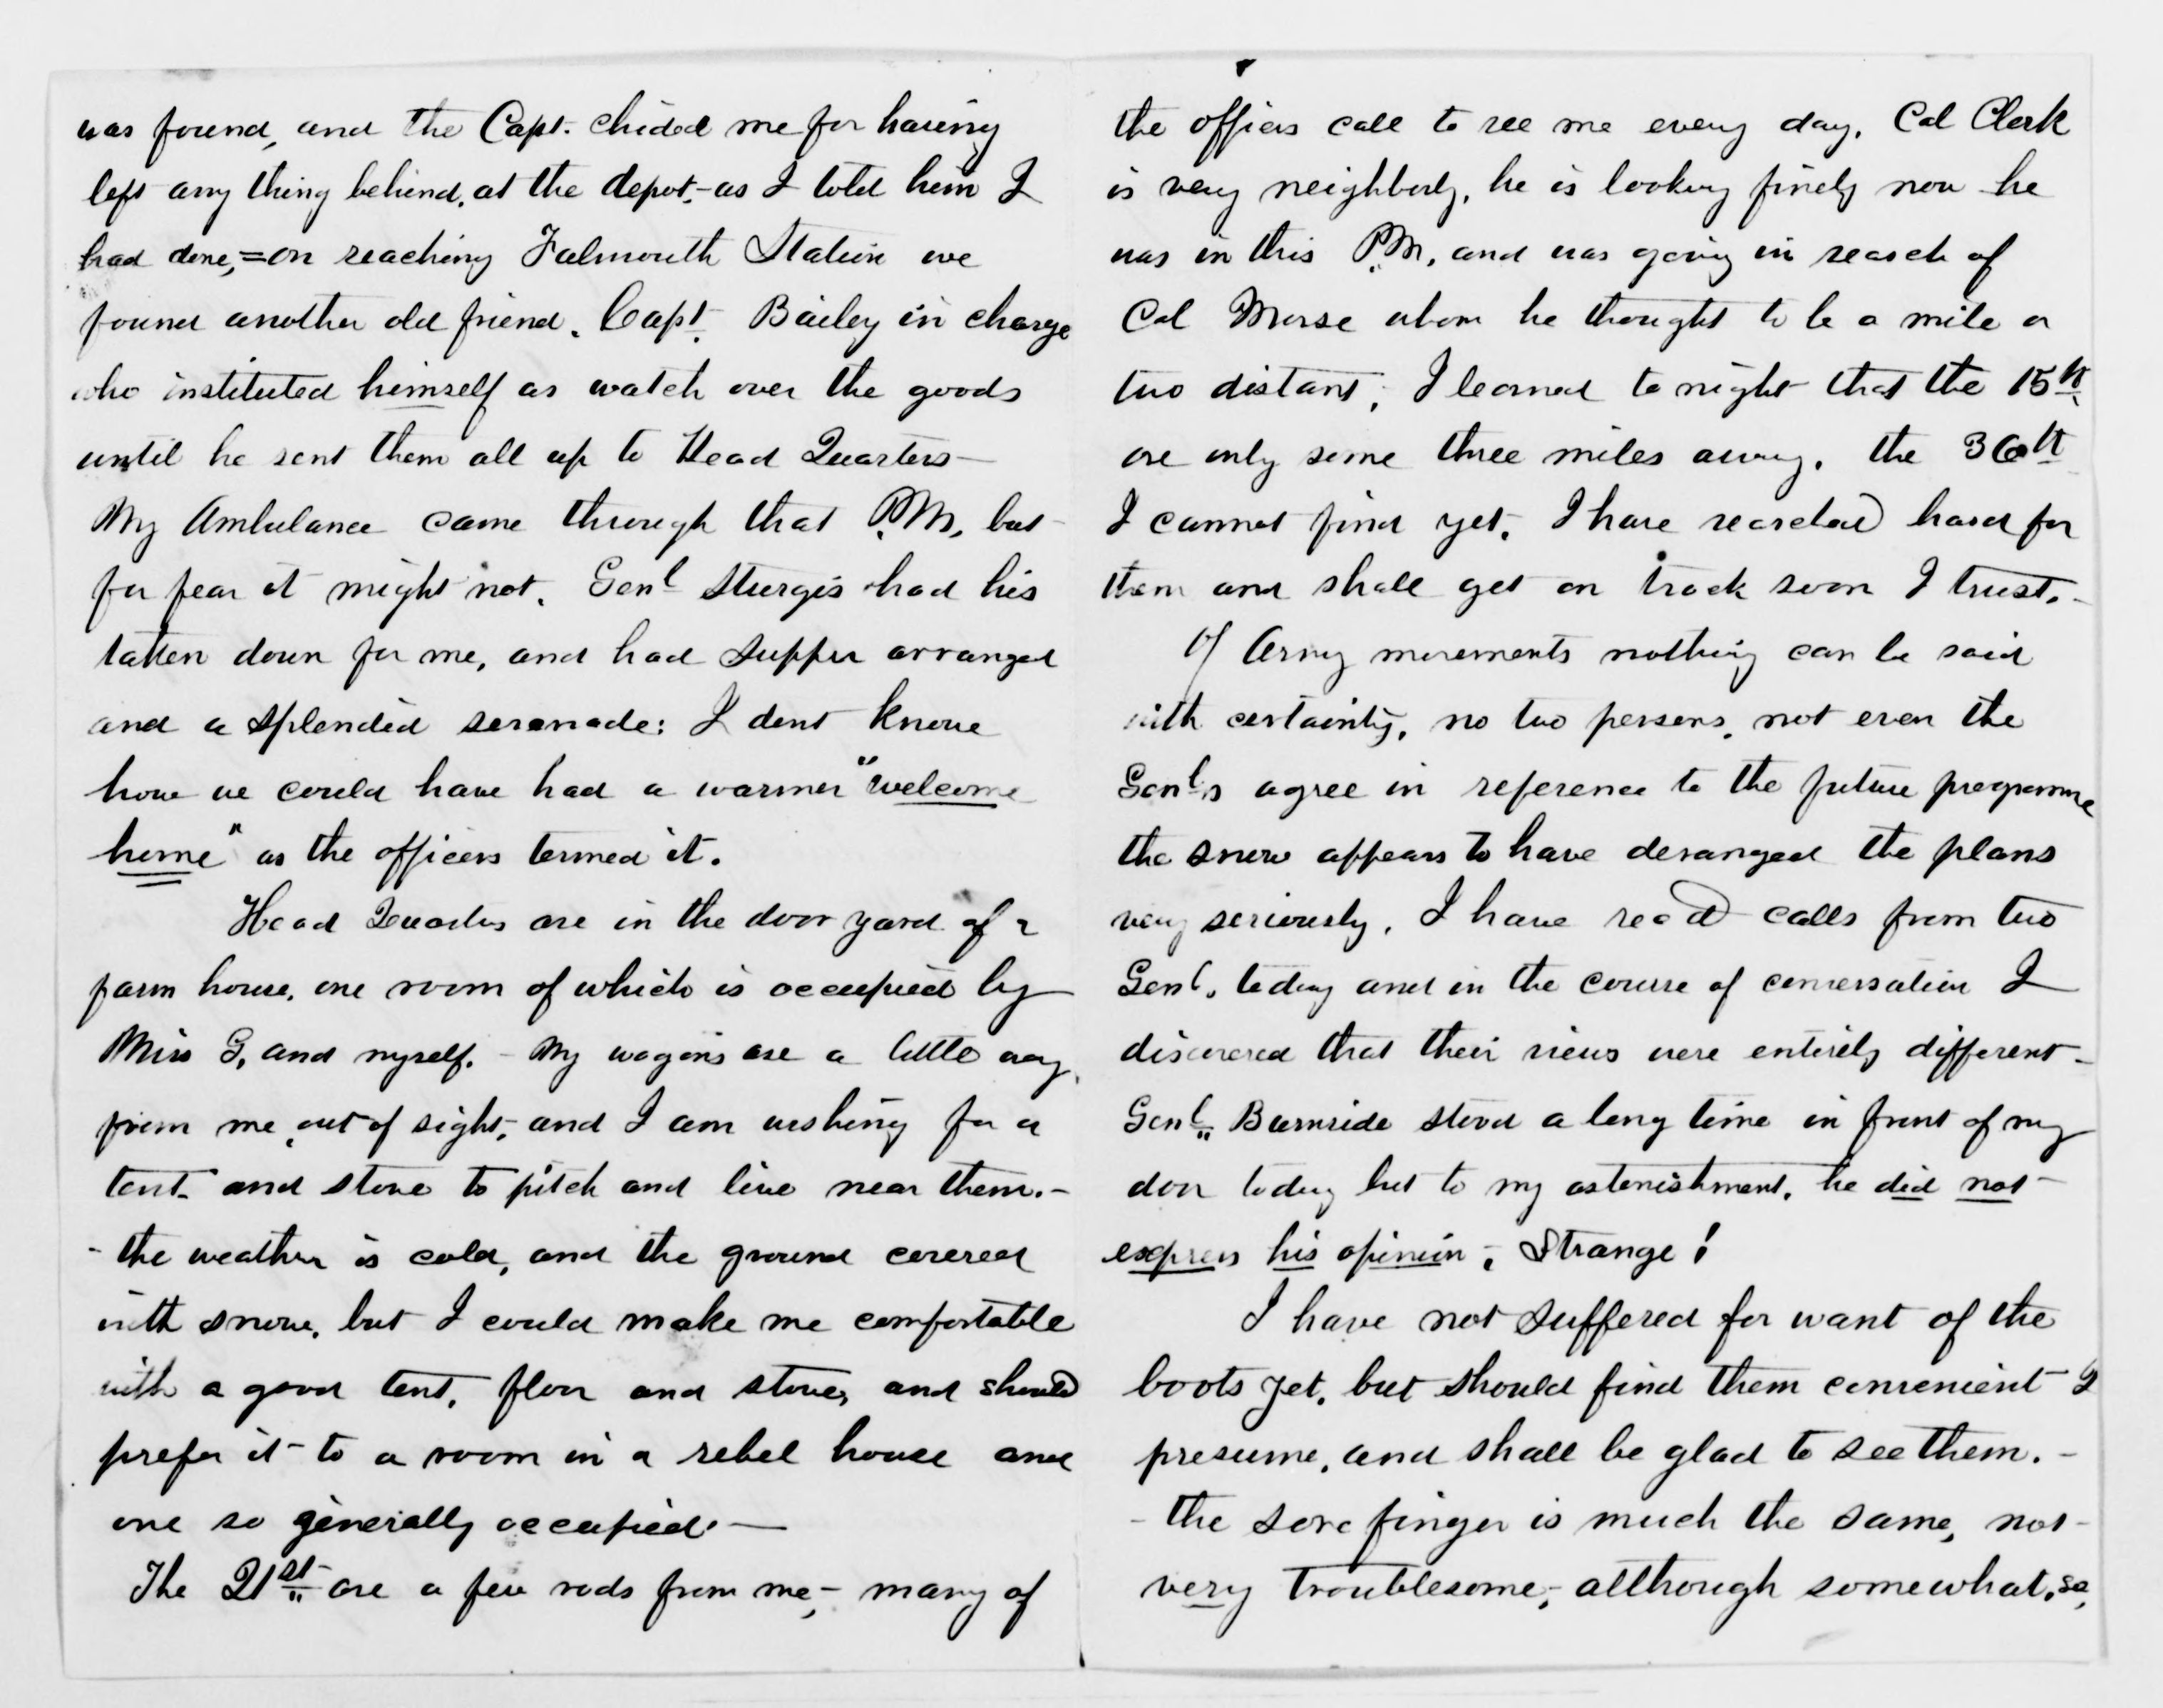 was found, and the Capt. chided me for having
left any thing behind, at the depot, - as I told him I
had done, = on reaching Falmouth Station we
found another old friend, Capt. Bailey in charge
who instituted himself as watch over the goods
until he sent them all up to Head Quarters —
My Ambulance came through that P.M. but
for fear it might not, Genl Sturgis had his
taken down for me, and had supper arranged
and a splendid serenade: I dont know
how we could have had a warmer "welcome
home" as the officers termed it.
Head Quarters are in the door yard of a
farm house, one room of which is occupied by
Miss G. and myself. - My wagons are a little way
from me, out of sight, and I am wishing for a
tent and stove to pitch and live near them. -
- the weather is cold, and the ground covered
with snow, but I could make me comfortable
with a good tent, floor and stove, and should
prefer it to a room in a rebel house and
one so generally occupied. —
The 21st are a few rods from me, - many of
the officers call to see me every day. Col Clark
is very neighborly, he is looking finely now he
was in this P.M. and was going in search of
Col Morse whom he thought to be a mile or
two distant; I learned to night that the 15th
are only some three miles away. the 36th
I cannot find yet. I have searched hard for
them and shall get on track soon I trust. -
Of Army movements nothing can be said
with certainty, no two persons, not even the
Genls agree in reference to the future programme
the snow appears to have deranged the plans
very seriously. I have recd calls from two
Genls. today and in the course of conversation I
discovered that their views were entirely different -
Genl. Burnside stood a long time in front of my
door today but to my astonishment, he did not
express his opinion; Strange!
I have not suffered for want of the
boots yet, but should find them convenient I
presume, and shall be glad to see them. -
- the sore finger is much the same, not
very troublesome, - although somewhat, so,